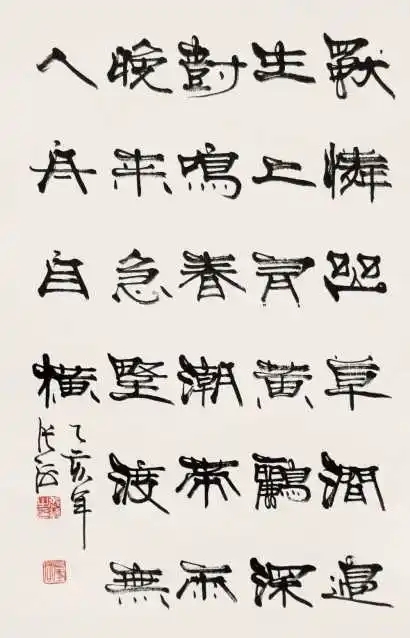 獨憐幽草澗邊
生上有黃鸝深
樹鳴春潮帶雨
晚来急野渡無
人舟自橫
乙亥年
張海